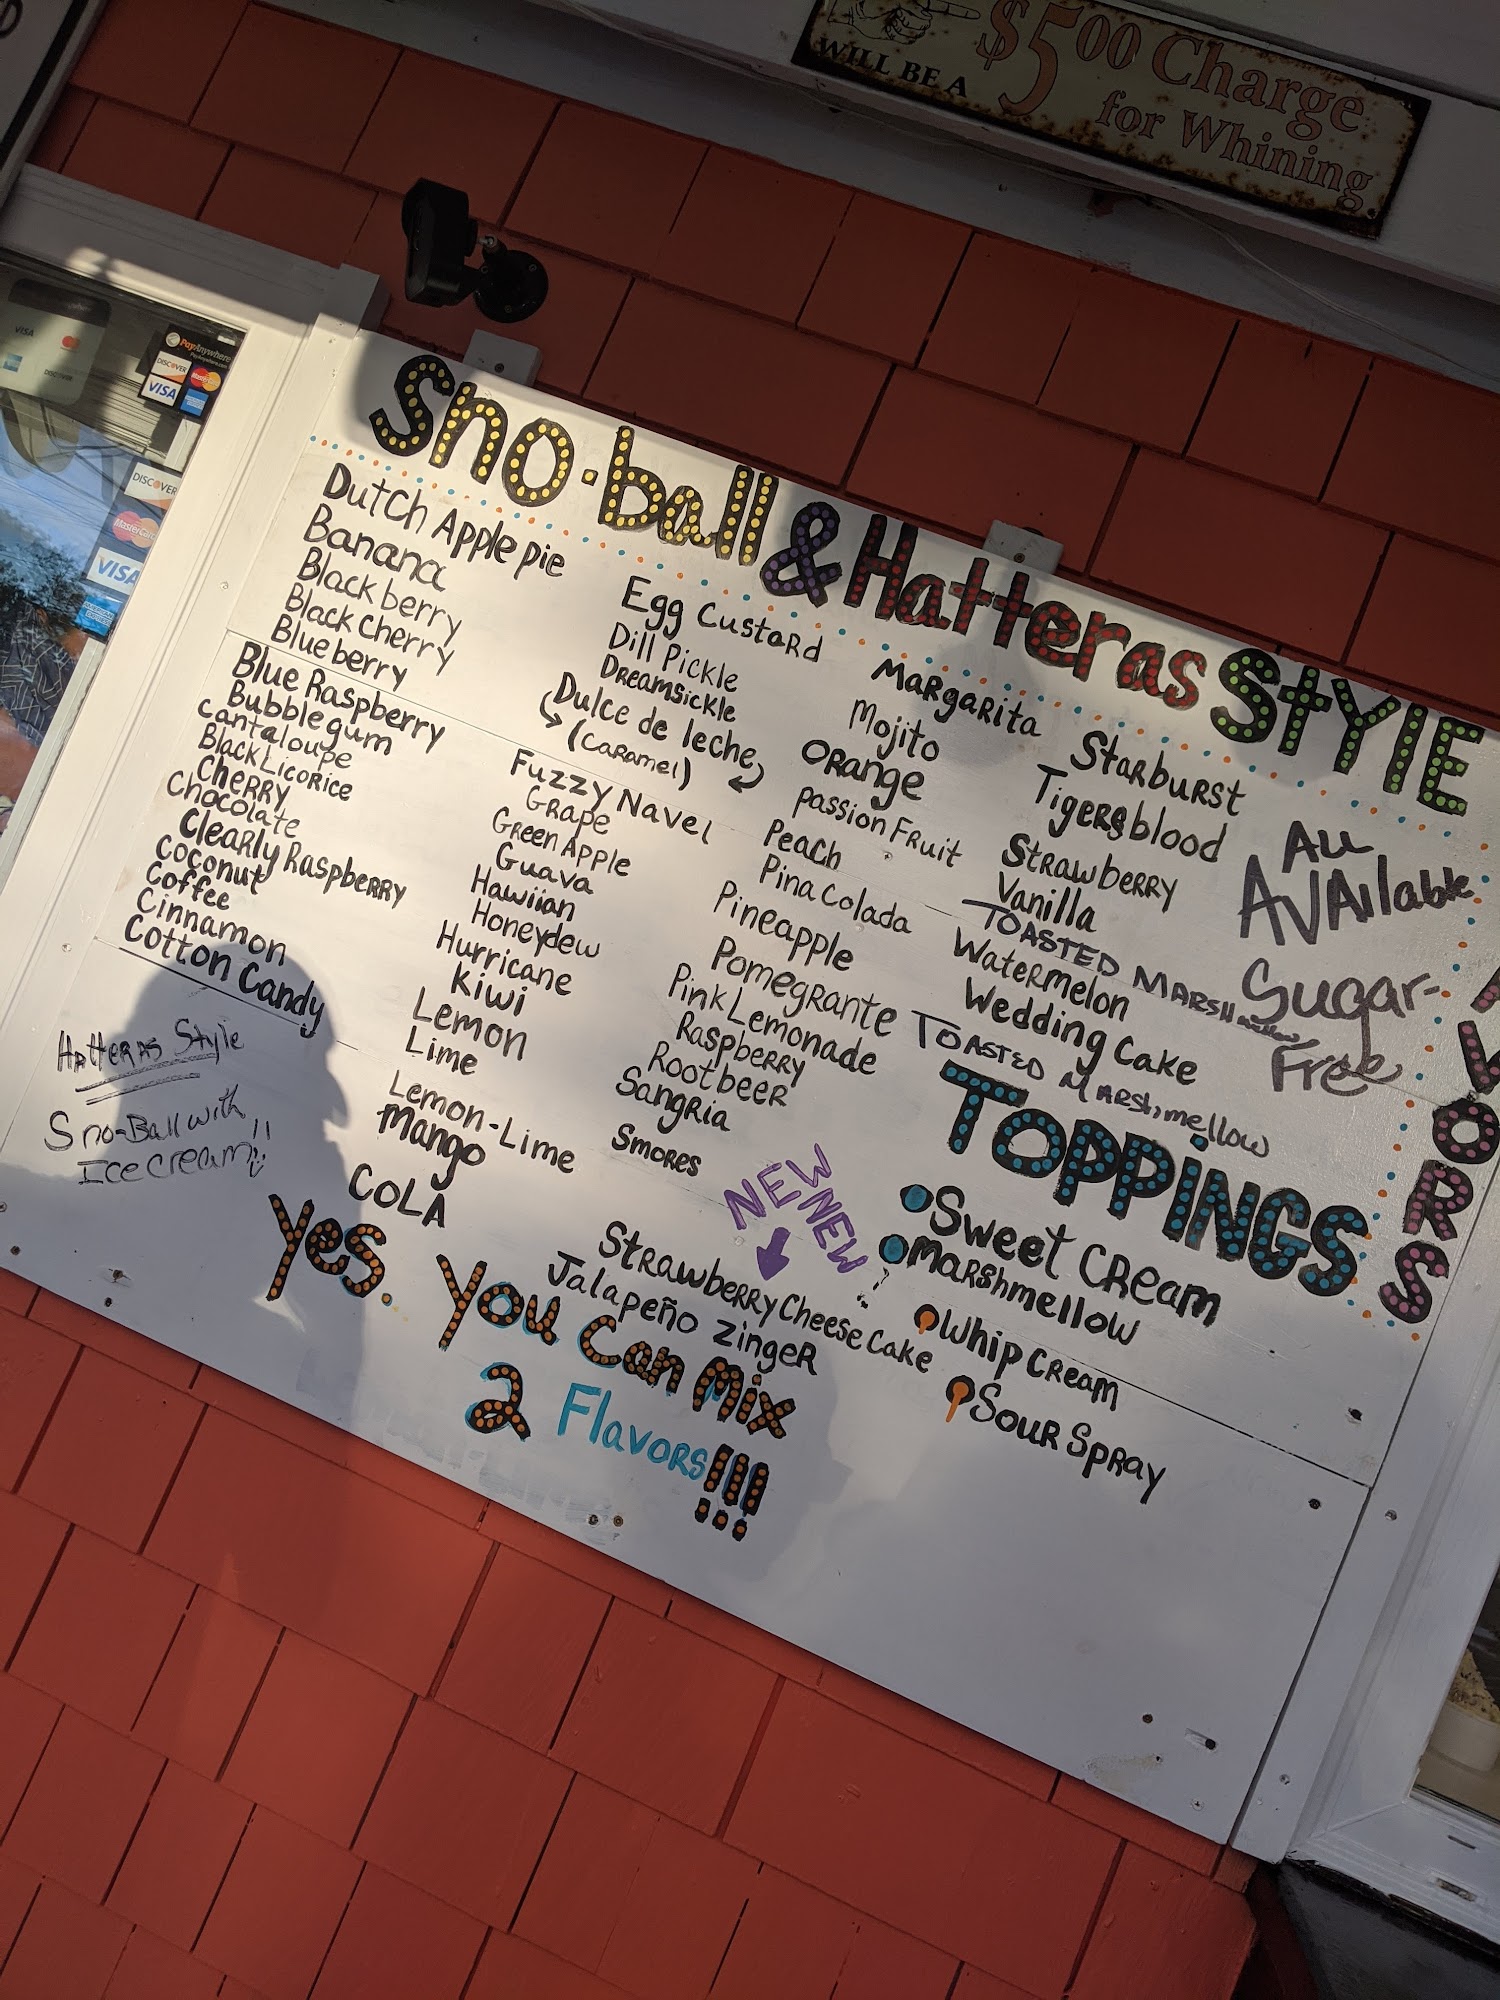 WILL BE A
$5.00 Charge
for Whining
VISA
DISCOVER
PayAnywhere
PayAnywhere.com
DISCOVER
MasterCard
VISA
DISCOVER
MasterCard
VISA
AMERICAN EXPRESS
Sno-ball & Hatteras StYlE
FlAVORS
Dutch Apple pie
Banana
Blackberry
Black Cherry
Blueberry
Blue Raspberry
Bubblegum
Cantaloupe
Black Licorice
Cherry
Chocolate
Clearly Raspberry
Coconut
Coffee
Cinnamon
Cotton Candy
Hatteras Style
Sno-Ball with
Ice cream!!
Egg Custard
Dill Pickle
Dreamsickle
Dulce de leche
(Caramel)
Fuzzy Navel
Grape
Green Apple
Guava
Hawiian
Honeydew
Hurricane
Kiwi
Lemon
Lime
Lemon-Lime
Mango
COLA
Margarita
Mojito
Orange
Passion Fruit
Peach
Pina Colada
Pineapple
Pomegrante
Pink Lemonade
Raspberry
Rootbeer
Sangria
Smores
NEW NEW
Strawberry Cheese Cake
Jalapeño Zinger
Starburst
Tigersblood
Strawberry
Vanilla
TOASTED MARSHmallow
Watermelon
Wedding Cake
TOASTED MARSHmellow
All
Available
Sugar-
Free
TOPPINGS
Sweet Cream
Marshmellow
Whip Cream
Sour Spray
Yes. You Can Mix
2 Flavors!!!